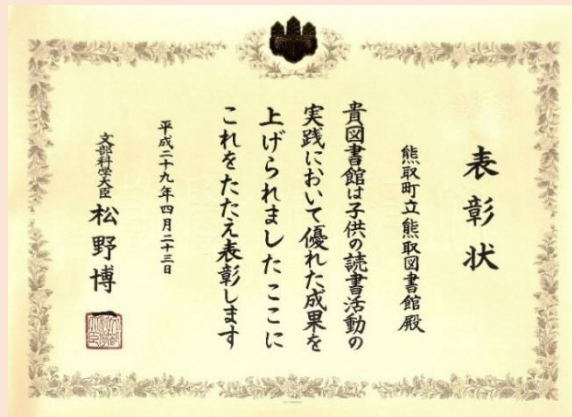 表彰状
熊取町立熊取図書館殿
貴図書館は子供の読書活動の
実践において優れた成果を
上げられましたここに
これをたたえ表彰します
平成二十九年四月二十三日
文部科学大臣 松野博一